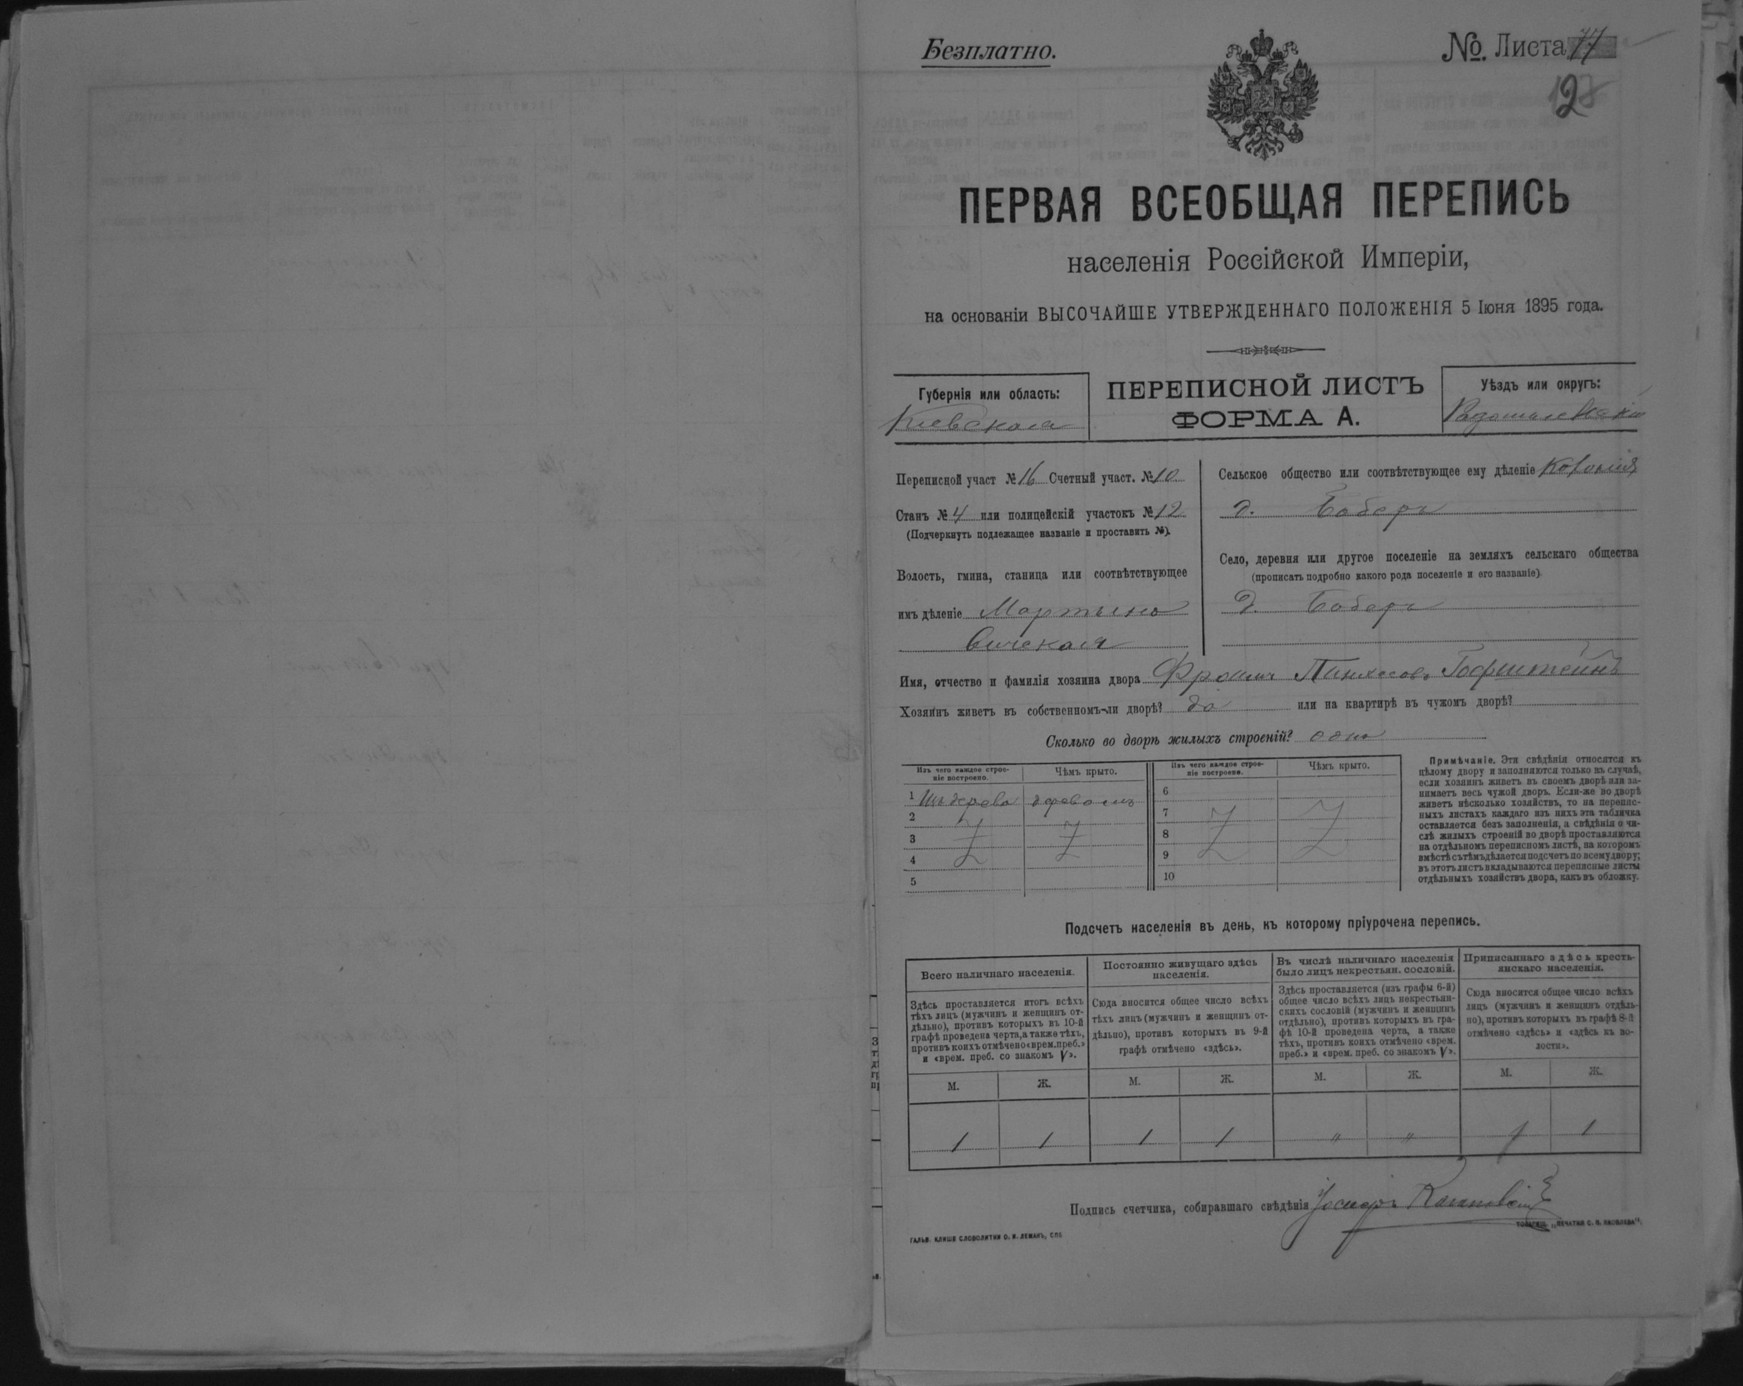 Безплатно.
№. Листа 77
12
ПЕРВАЯ ВСЕОБЩАЯ ПЕРЕПИСЬ
населенія Россійской Имперіи,
на основаніи ВЫСОЧАЙШЕ УТВЕРЖДЕННАГО ПОЛОЖЕНІЯ 5 Іюня 1895 года.
Губернія или область:
Кіевская
ПЕРЕПИСНОЙ ЛИСТЪ
ФОРМА А.
Уѣздъ или округъ:
Переписной участ № 16 Счетный участ. № 10
Станъ № 4 или полицейскій участокъ № 12
(Подчеркнуть подлежащее названіе и проставить №).
Волость, гмина, станица или соотвѣтствующее
имъ дѣленіе Мартыно
вичская
Сельское общество или соотвѣтствующее ему дѣленіе Колонія
д. Боберъ
Село, деревня или другое поселеніе на земляхъ сельскаго общества
(прописать подробно какого рода поселеніе и его названіе).
д. Боберъ
Имя, отчество и фамилія хозяина двора Фроимъ Пинхасовъ Гофштейнъ
Хозяинъ живетъ въ собственномъ-ли дворѣ? да или на квартирѣ въ чужомъ дворѣ?
Сколько во дворѣ жилыхъ строеній? одно
Изъ чего каждое строе-
ніе построено.
Чѣмъ крыто.
Изъ чего каждое строе-
ніе построено.
Чѣмъ крыто.
1 Изъ дерева деревомъ
2
3
4
5
6
7
8
9
10
Примѣчаніе. Эти свѣдѣнія относятся къ
цѣлому двору и заполняются только въ случаѣ,
если хозяинъ живетъ въ своемъ дворѣ или за-
нимаетъ весь чужой дворъ. Если-же во дворѣ
живетъ нѣсколько хозяйствъ, то на перепис-
ныхъ листахъ каждаго изъ нихъ эта табличка
оставляется безъ заполненія, а свѣдѣнія о чи-
слѣ жилыхъ строеній во дворѣ проставляются
на отдѣльномъ переписномъ листѣ, на которомъ
вмѣстѣ съ тѣмъ дѣлается подсчетъ по всему двору;
въ этотъ листъ вкладываются переписные листы
отдѣльныхъ хозяйствъ двора, какъ въ обложку.
Подсчетъ населенія въ день, къ которому пріурочена перепись.
Всего наличнаго населенія.
Здѣсь проставляется итогъ всѣхъ
тѣхъ лицъ (мужчинъ и женщинъ от-
дѣльно), противъ которыхъ въ 10-й
графѣ проведена черта, а также тѣхъ,
противъ коихъ отмѣчено «врем. преб.»
и «врем. преб. со знакомъ V».
Постоянно живущаго здѣсь
населенія.
Сюда вносится общее число всѣхъ
тѣхъ лицъ (мужчинъ и женщинъ от-
дѣльно), противъ которыхъ въ 9-й
графѣ отмѣчено «здѣсь».
Въ числѣ наличнаго населенія
было лицъ некрестьян. сословій.
Здѣсь проставляется (изъ графы 6-й)
общее число всѣхъ лицъ некрестьян-
скихъ сословій (мужчинъ и женщинъ
отдѣльно), противъ которыхъ въ гра-
фѣ 10-й проведена черта, а также
тѣхъ, противъ коихъ отмѣчено «врем.
преб.» и «врем. преб. со знакомъ V».
Приписаннаго здѣсь кресть-
янскаго населенія.
Сюда вносится общее число всѣхъ
лицъ (мужчинъ и женщинъ отдѣль-
но), противъ которыхъ въ графѣ 8-й
отмѣчено «здѣсь» и «здѣсь въ во-
лости».
М. Ж. М. Ж. М. Ж. М. Ж.
1 1 1 1 " " 1 1
Подпись счетчика, собиравшаго свѣдѣнія
ГАЛЬВ. КЛИШЕ СЛОВОЛИТНИ О. И. ЛЕМАНЪ, СПБ.
„ПЕЧАТНЯ С. П. ЯКОВЛЕВА“.